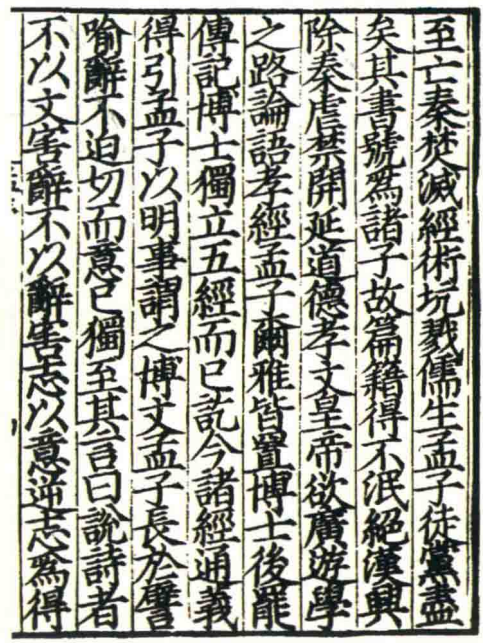 至亡秦焚滅經術坑戮儒生孟子徒黨盡
矣其書號爲諸子故篇籍得不泯絕漢興
除秦虐禁開延道德孝文皇帝欲廣游學
之路論語孝經孟子爾雅皆置博士後罷
傳記博士獨立五經而已訖今諸經通義
得引孟子以明事謂之博文孟子長於譬
喻辭不迫切而意已獨至其言曰說詩者
不以文害辭不以辭害志以意逆志爲得